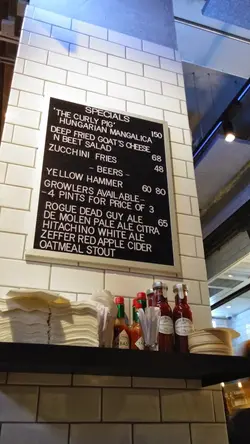 SPECIALS
'THE CURLY PIG' 150
HUNGARIAN MANGALICA
DEEP FRIED GOAT'S CHEESE
N BEET SALAD 68
ZUCCHINI FRIES 48
- BEERS -
YELLOW HAMMER 60 80
GROWLERS AVAILABLE -
- 4 PINTS FOR PRICE OF 3
ROGUE DEAD GUY ALE 65
DE MOLEN PALE ALE CITRA
HITACHINO WHITE ALE
ZEFFER RED APPLE CIDER
OATMEAL STOUT